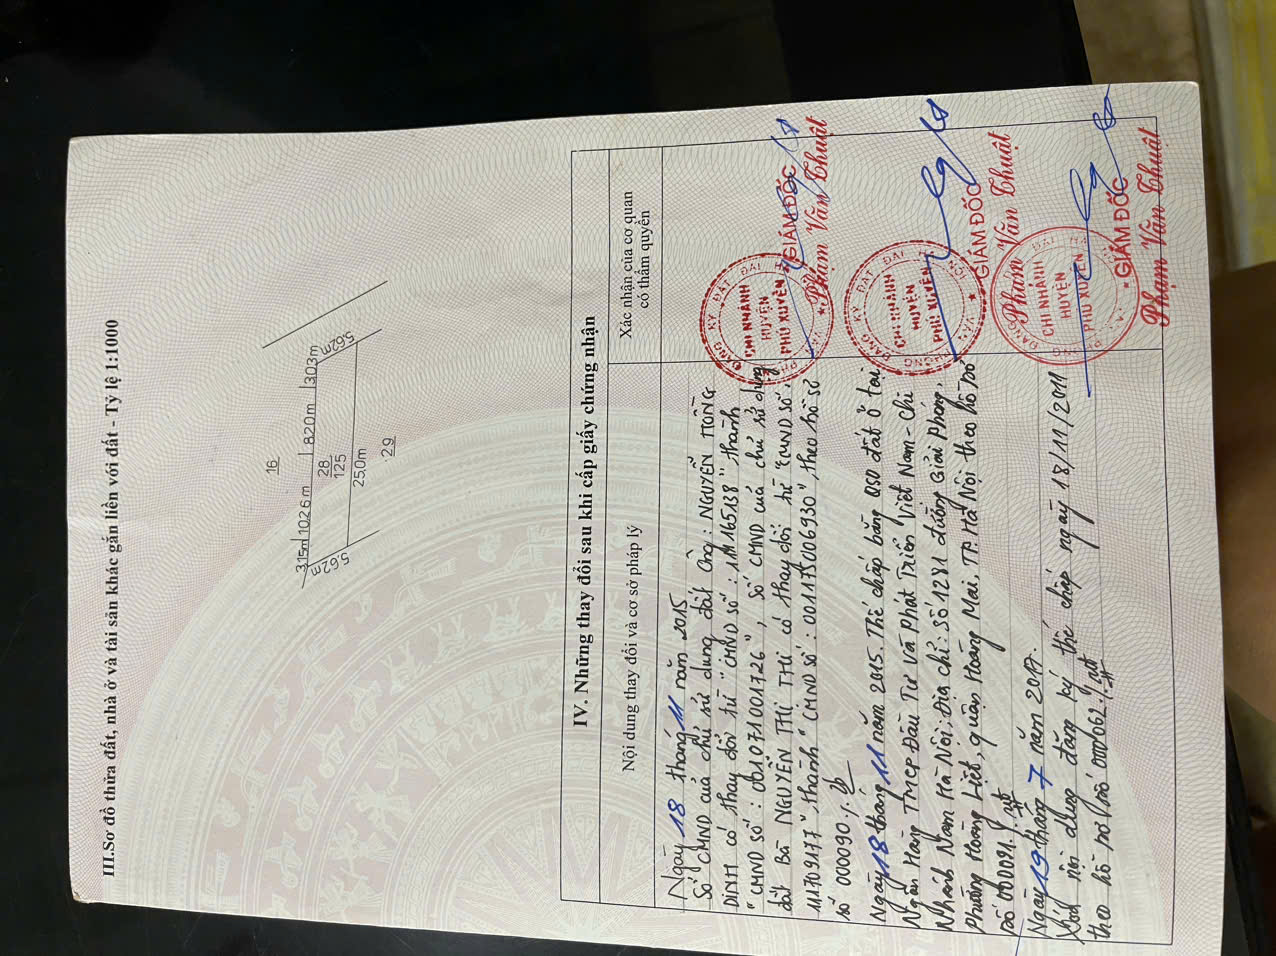 III.Sơ đồ thửa đất, nhà ở và tài sản khác gắn liền với đất - Tỷ lệ 1:1000
16
3.15m
10.26m
8.20m
3.03m
5.62m
28
125
5.62m
25.0m
29
IV. Những thay đổi sau khi cấp giấy chứng nhận
Nội dung thay đổi và cơ sở pháp lý
Xác nhận của cơ quan
có thẩm quyền
Ngày 18 tháng 11 năm 2015
Số CMND của chủ sử dụng đất Ông: NGUYỄN HỒNG
DINH có thay đổi từ "CMND số: 111165138" thành
"CMND số: 001071001726", số CMND của chủ sử dụng
đất Bà NGUYỄN THỊ THI có thay đổi từ "CMND số:
111709177", thành "CMND số: 001175006930", theo hồ sơ
số 000090./.
Ngày 18 tháng 11 năm 2015. Thế chấp bằng QSD đất ở tại
Ngân Hàng TMCP Đầu Tư Và Phát Triển Việt Nam - Chi
Nhánh Nam Hà Nội; Địa chỉ: Số 1281 đường Giải Phóng,
Phường Hoàng Liệt, quận Hoàng Mai, TP. Hà Nội theo hồ sơ
số 000091./.
Ngày 19 tháng 7 năm 2017.
Xóa nội dung đăng ký thế chấp ngày 18/11/2011
theo hồ sơ số 000062./.
CHI NHÁNH
HUYỆN
PHÚ XUYÊN
GIÁM ĐỐC
Phạm Văn Thuật
CHI NHÁNH
HUYỆN
PHÚ XUYÊN
GIÁM ĐỐC
Phạm Văn Thuật
CHI NHÁNH
HUYỆN
PHÚ XUYÊN
GIÁM ĐỐC
Phạm Văn Thuật